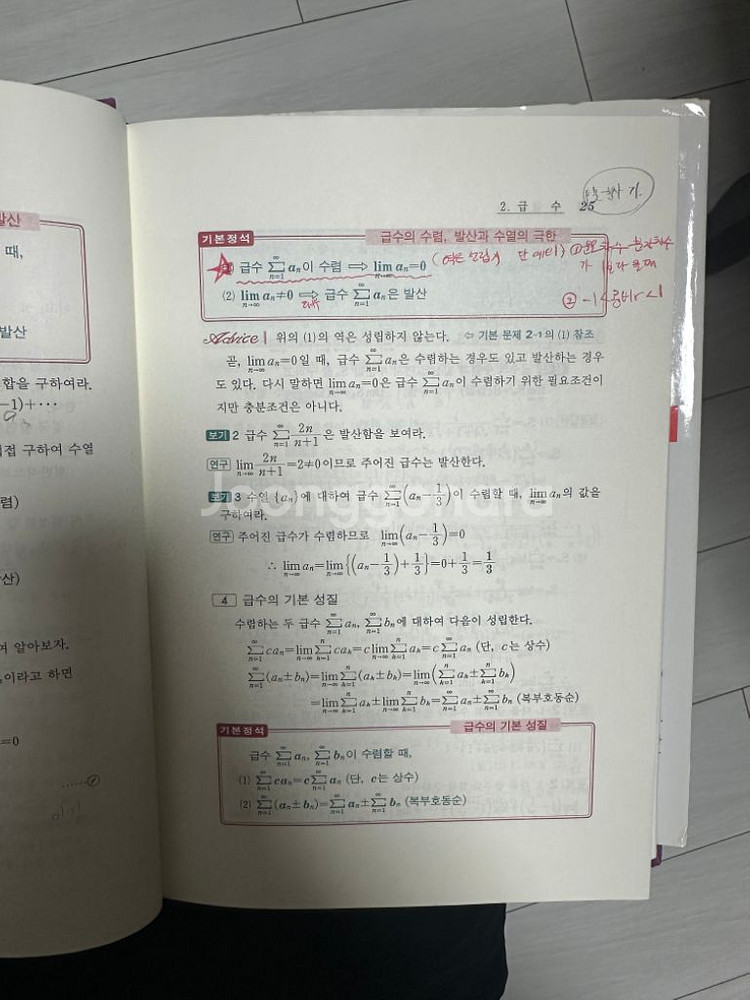 2. 급 수 25
발산
때,
발산
합을 구하여라.
-1)+⋯
접 구하여 수열
렴)
산)
여 알아보자.
이라고 하면
=0
기본정석 급수의 수렴, 발산과 수열의 극한
급수 ∑_{n=1}^{∞} aₙ이 수렴 ⟹ lim_{n→∞} aₙ=0
(2) lim_{n→∞} aₙ≠0 ⟹ 급수 ∑_{n=1}^{∞} aₙ은 발산
대우
Advice | 위의 (1)의 역은 성립하지 않는다. ⇦ 기본 문제 2-1의 (1) 참조
곧, lim_{n→∞} aₙ=0일 때, 급수 ∑_{n=1}^{∞} aₙ은 수렴하는 경우도 있고 발산하는 경우
도 있다. 다시 말하면 lim_{n→∞} aₙ=0은 급수 ∑_{n=1}^{∞} aₙ이 수렴하기 위한 필요조건이
지만 충분조건은 아니다.
보기 2 급수 ∑_{n=1}^{∞} 2n/(n+1) 은 발산함을 보여라.
연구 lim_{n→∞} 2n/(n+1)=2≠0이므로 주어진 급수는 발산한다.
보기 3 수열 {aₙ}에 대하여 급수 ∑_{n=1}^{∞}(aₙ-1/3)이 수렴할 때, lim_{n→∞} aₙ의 값을
구하여라.
Joonggonara
연구 주어진 급수가 수렴하므로 lim_{n→∞}(aₙ-1/3)=0
∴ lim_{n→∞} aₙ=lim_{n→∞}{(aₙ-1/3)+1/3}=0+1/3=1/3
4 급수의 기본 성질
수렴하는 두 급수 ∑_{n=1}^{∞} aₙ, ∑_{n=1}^{∞} bₙ에 대하여 다음이 성립한다.
∑_{n=1}^{∞} caₙ=lim_{n→∞} ∑_{k=1}^{n} caₖ=c lim_{n→∞} ∑_{k=1}^{n} aₖ=c ∑_{n=1}^{∞} aₙ (단, c는 상수)
∑_{n=1}^{∞}(aₙ±bₙ)=lim_{n→∞} ∑_{k=1}^{n}(aₖ±bₖ)=lim_{n→∞}(∑_{k=1}^{n} aₖ±∑_{k=1}^{n} bₖ)
=lim_{n→∞} ∑_{k=1}^{n} aₖ±lim_{n→∞} ∑_{k=1}^{n} bₖ=∑_{n=1}^{∞} aₙ±∑_{n=1}^{∞} bₙ (복부호동순)
기본정석 급수의 기본 성질
급수 ∑_{n=1}^{∞} aₙ, ∑_{n=1}^{∞} bₙ이 수렴할 때,
(1) ∑_{n=1}^{∞} caₙ=c∑_{n=1}^{∞} aₙ (단, c는 상수)
(2) ∑_{n=1}^{∞}(aₙ±bₙ)=∑_{n=1}^{∞} aₙ±∑_{n=1}^{∞} bₙ (복부호동순)